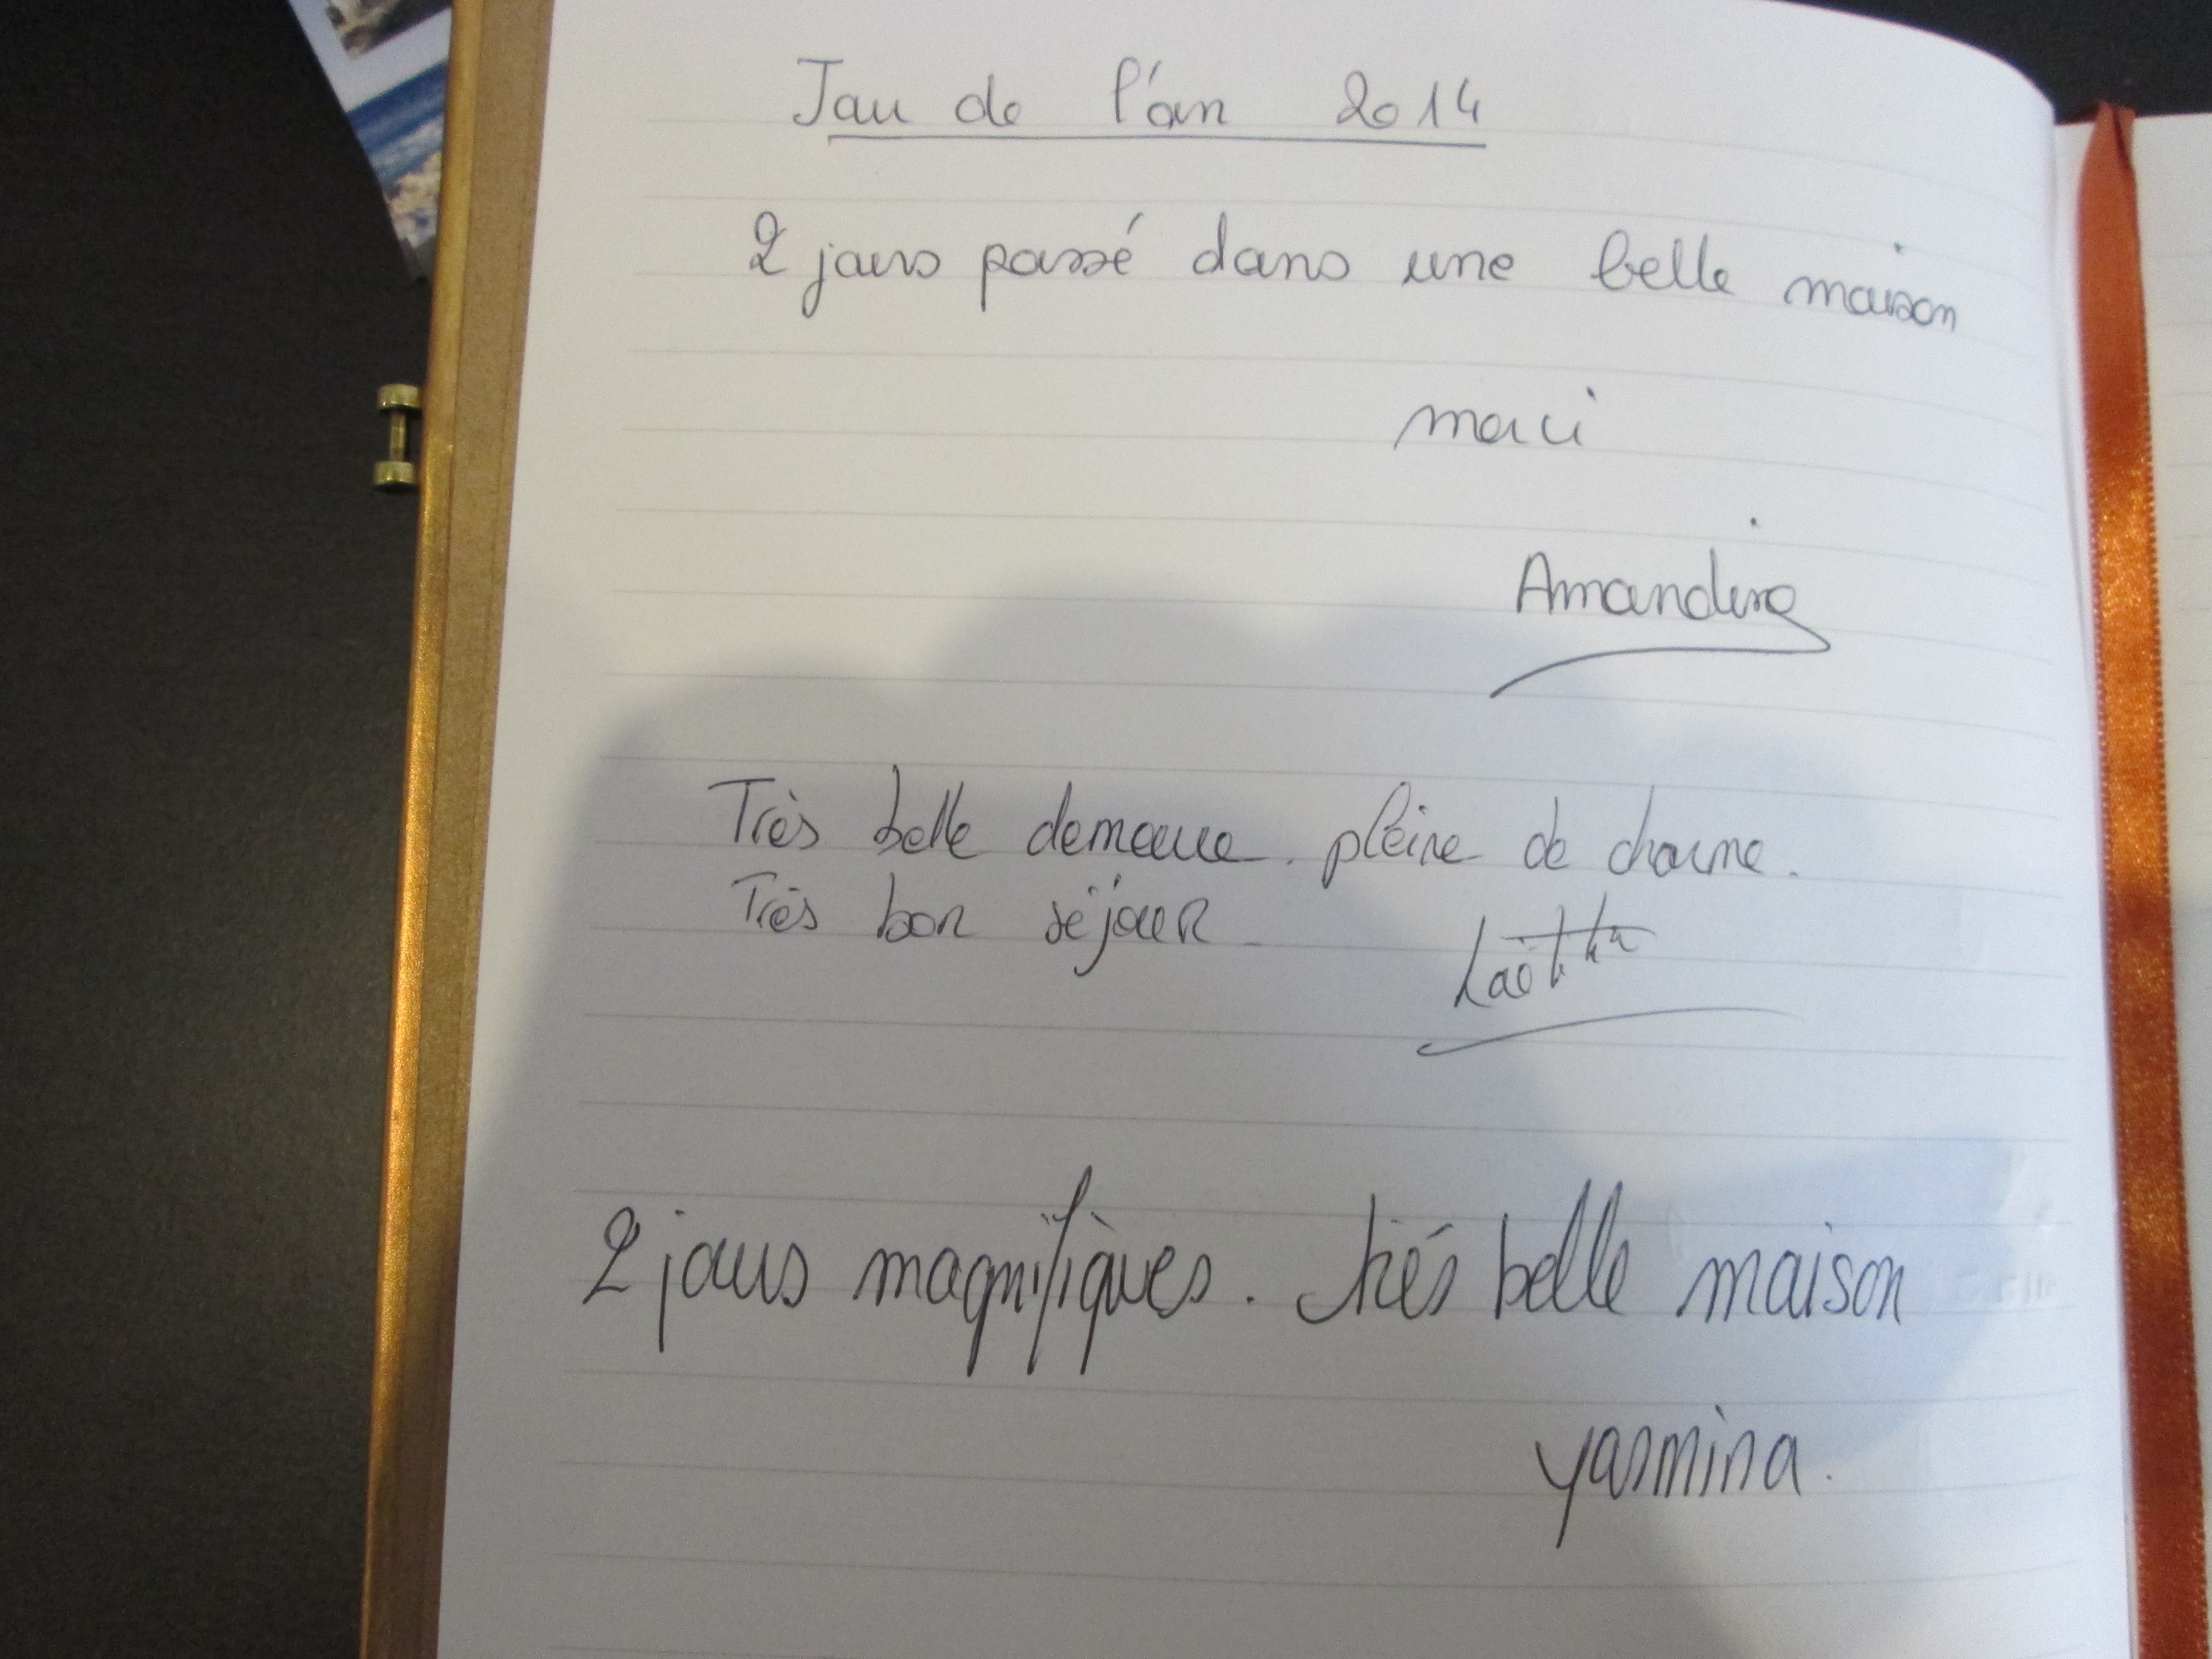 Jour de l'an 2014
2 jours passé dans une belle maison
merci
Amandine
Très belle demeure. pleine de charme.
Très bon séjour.
Laëtitia
2 jours magnifiques. trés belle maison
yasmina.